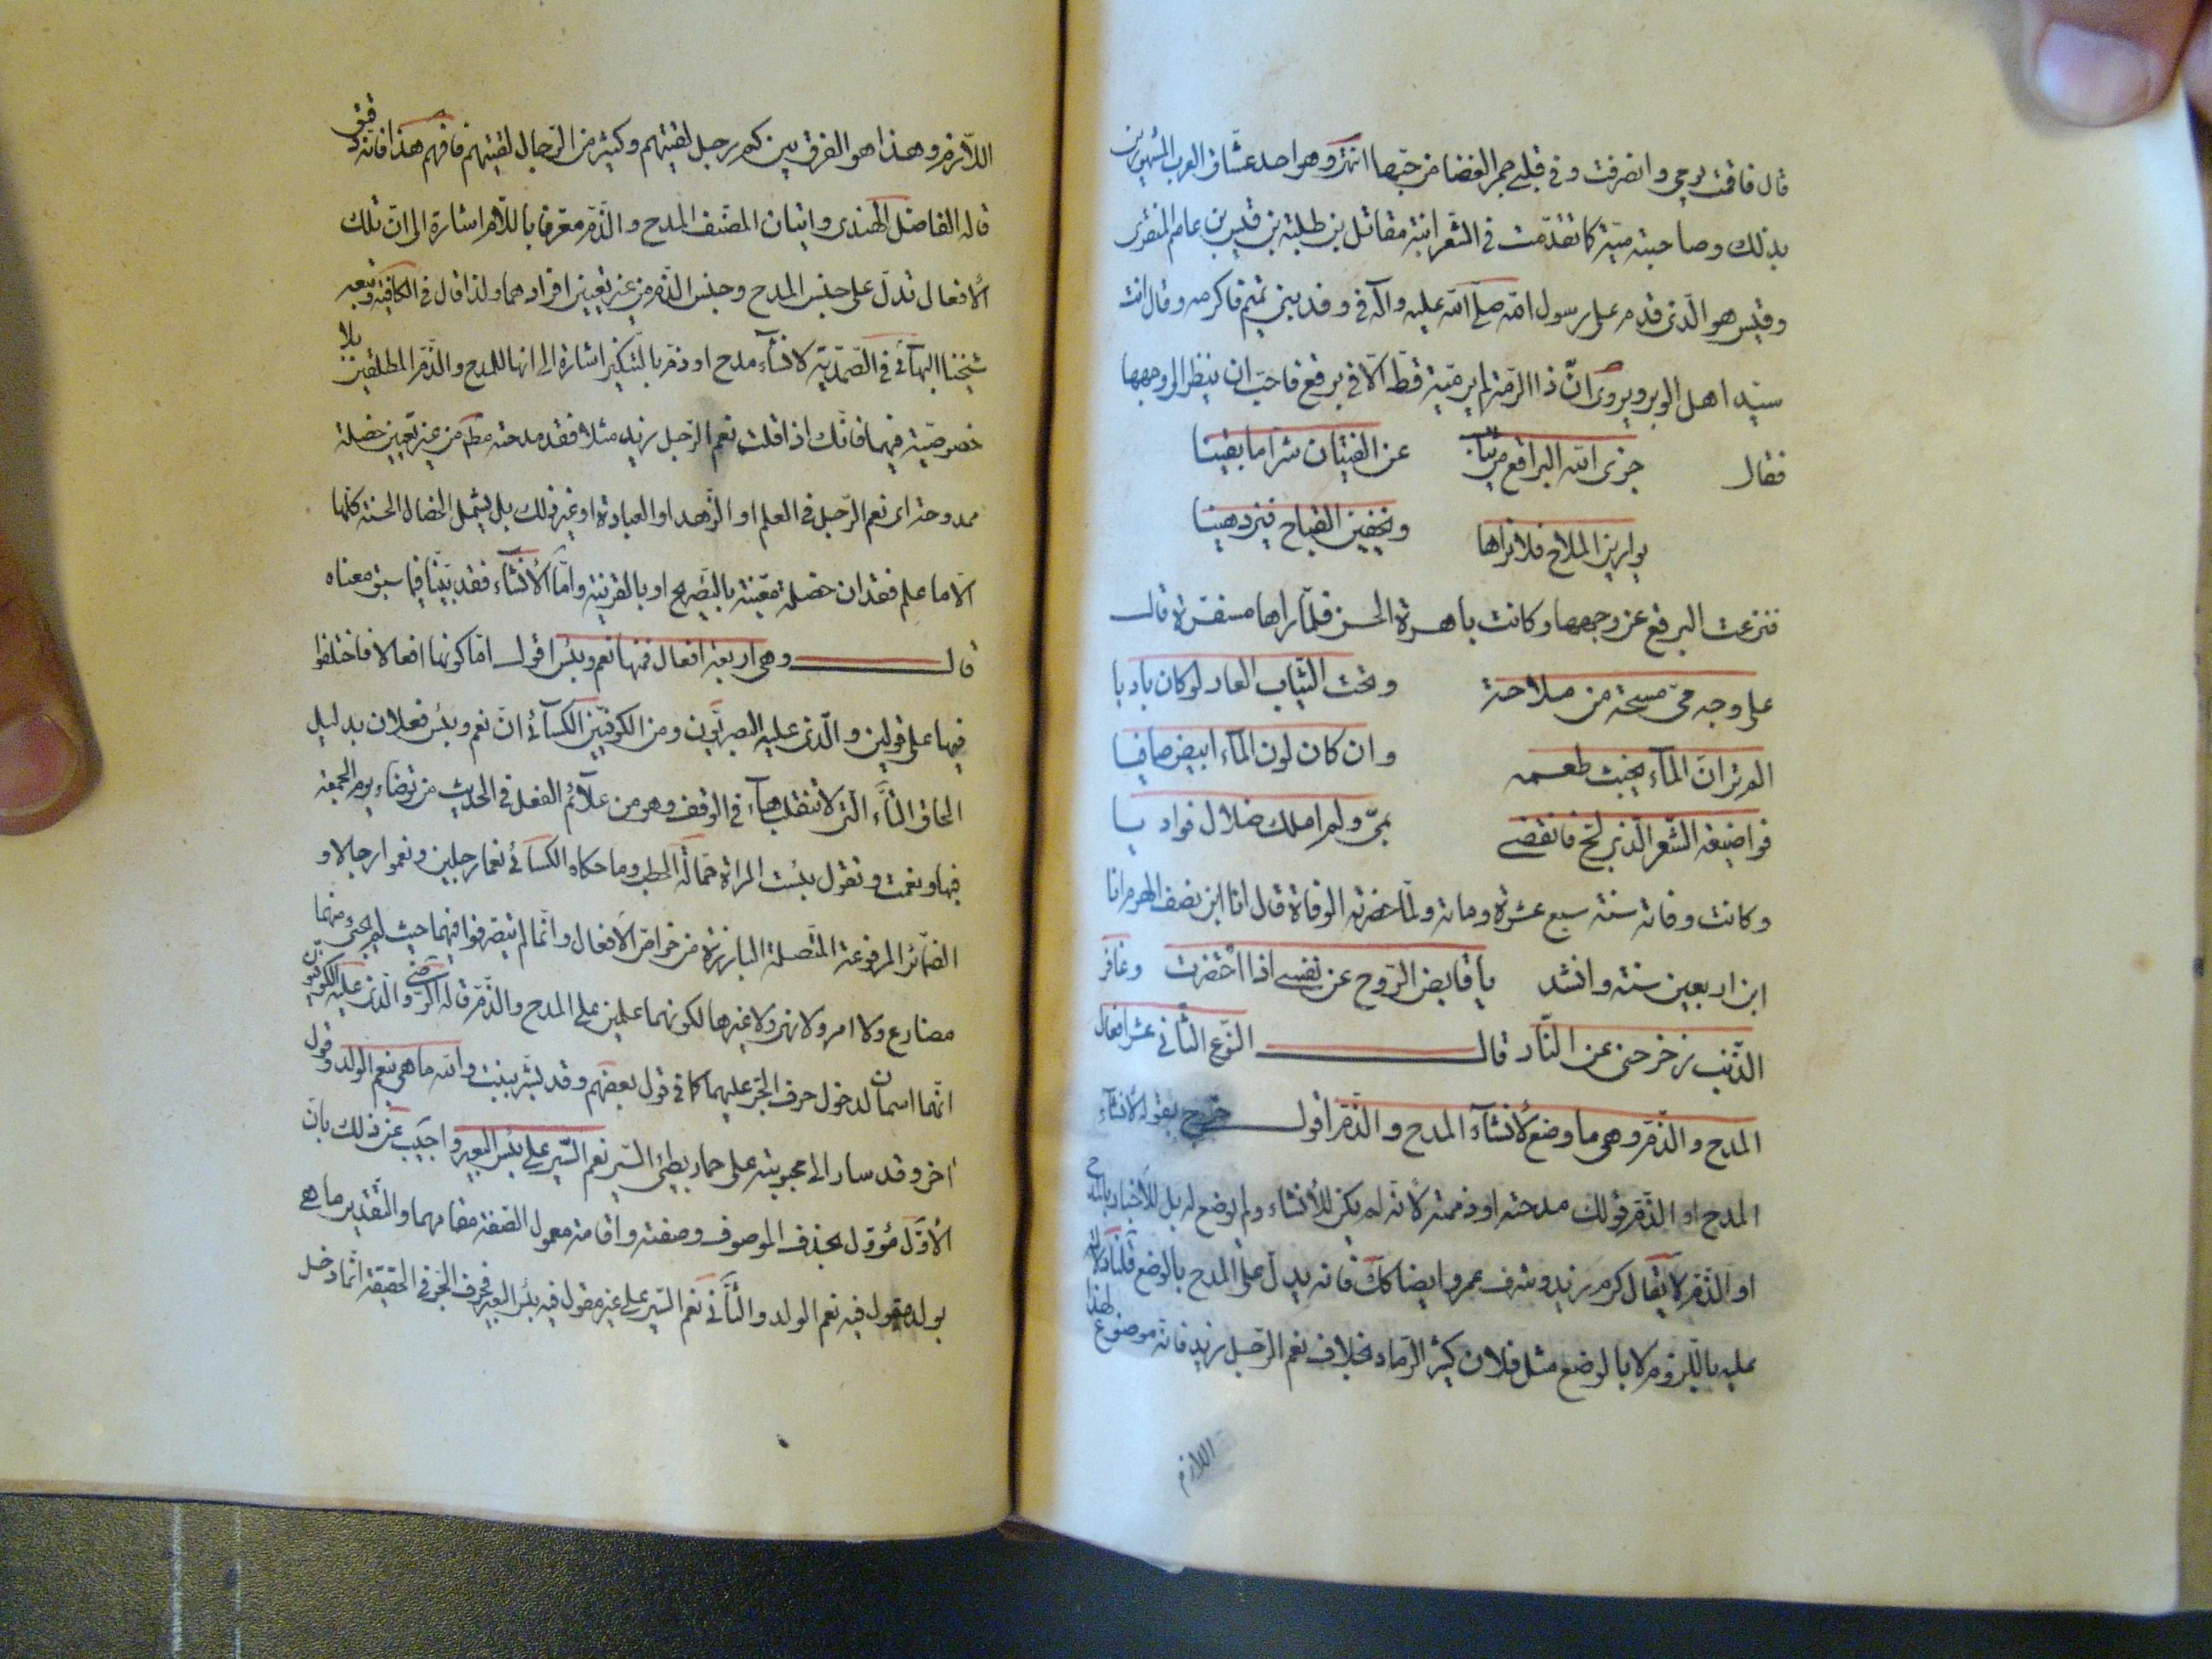 قال فاقمت يومي وانصرفت وفي قلبي جمر الغضا من حبها انتهى وهو احد عشاق العرب المشهورين
بذلك وصاحبته مية كما تقدمت في الشعر ابنة مقاتل بن طلبة بن قيس بن عاصم المنقري
وقيس هو الذي قدم على رسول الله صلى الله عليه وآله في وفد بني تميم فاكرمه وقال انت
سيد اهل الوبر ويروى ان ذا الرمة لم ير مية قط الا في برقع فاحب ان ينظر الى وجهها
فقال جزى الله البراقع من ثياب عن الفتيان شرا ما بقينا
يوارين الملاح فلا نراها ويخفين القباح فيزدهينا
فنزعت البرقع عن وجهها وكانت باهرة الحسن فلما راها مسفرة قال
على وجه مي مسحة من ملاحة وتحت الثياب العار لو كان باديا
الم تر ان الماء يخبث طعمه وان كان لون الماء ابيض صافيا
فواضيعة الشعر الذي لج فانقضى بمي ولم املك ضلال فواديا
وكانت وفاته سنة سبع عشرة ومائة ولما حضرته الوفاة قال انا ابن نصف الهرم انا
ابن اربعين سنة وانشد يا قابض الروح عن نفسي اذا احتضرت وغافر
الذنب زحزحني عن النار قال النوع الثاني عشر افعال
المدح والذم وهي ما وضع لانشاء المدح والذم اقول خرج بقوله لانشاء
المدح او الذم قولك مدحته او ذممته لانه لم يكن للانشاء ولم يوضع له بل للاخبار بالمدح
او الذم لا يقال كرم زيد وشرف عمرو ايضا كك فانه يدل على المدح بالوضع قلنا دلالته
عليه باللزوم لا بالوضع مثل فلان كثير الرماد بخلاف نعم الرجل زيد فانه موضوع لهذا
اللازم
اللازم وهذا هو الفرق بين كم رجل لقيتهم وكثير من الرجال لقيتهم فافهم هذا فانه دقيق
قاله الفاضل الهندي واتيان المصنف المدح والذم معرفا باللام اشارة الى ان تلك
الافعال تدل على جنس المدح وجنس الذم من غير تعيين افرادهما ولذا قال في الكافية وتبعه
شيخنا البهائي في الصمدية لانشاء مدح او ذم بالتنكير اشارة الى انها للمدح والذم المطلقين بلا
خصوصية فيهما فانك اذا قلت نعم الرجل زيد مثلا فقد مدحته مطم من غير تعيين خصلة
ممدوحة اي نعم الرجل في العلم او الزهد او العبادة او غير ذلك بل يشمل الخصال الحسنة كلها
الا ما علم فقدان خصلة معينة بالتصريح او بالقرينة واما الانشاء فقد بينا فيما سبق معناه
قال وهي اربعة افعال فمنها نعم وبئس اقول اما كونها افعالا فاختلفوا
فيها على قولين والذي عليه البصريون ومن الكوفيين الكسائي ان نعم وبئس فعلان بدليل
الحاق التاء التي لا تنقلب هاء في الوقف وهو من علائم الفعل في الحديث من توضاء يوم الجمعة
فبها ونعمت وتقول بئست المراة حمالة الحطب وما حكاه الكسائي نعما رجلين ونعموا رجالا و
الضمائر المرفوعة المتصلة البارزة من خواص الافعال وانما لم يتصرفوا فيهما حيث لم يجئ منهما
مضارع ولا امر ولا نهي ولا غيرها لكونهما علمين على المدح والذم قاله الرضي والذي عليه الكوفيون
انهما اسمان لدخول حرف الجر عليهما كما في قول بعضهم وقد بشر ببنت والله ما هي بنعم الولد وقول
اخر وقد سار الى محبوبته على حمار بطيئ السير نعم السير على بئس العير واجيب عن ذلك بان
الاول مؤول بحذف الموصوف وصفته واقامة معمول الصفة مقامهما والتقدير ما هي
بولد مقول فيه نعم الولد والثاني نعم السير على عير مقول فيه بئس العير فحرف الجر في الحقيقة انما دخل